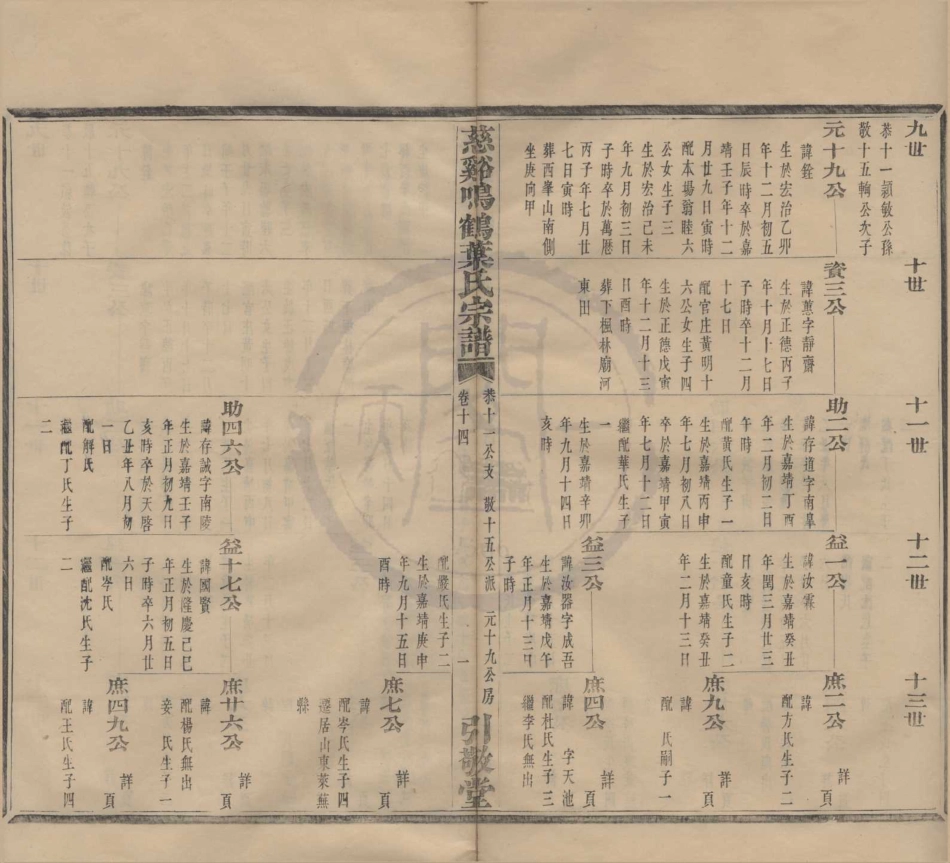 九世
恭十一穎敏公孫
敬十五翰公次子
元十九公
諱銓
生於宏治乙卯
年十二月初五
日辰時卒於嘉
靖壬子年十二
月廿九日寅時
配本場翁睦六
公女生子三
生於宏治己未
年九月初三日
子時卒於萬厯
丙子年七月廿
七日寅時
葬西峯山南側
坐庚向甲
十世
資三公
諱煎字靜齋
生於正德丙子
年十月十七日
子時卒十二月
十七日
配官庄黃明十
六公女生子四
生於正德戊寅
年十二月十三
日酉時
葬下楓林廟河
東田
十一世
助二公
諱存道字南皐
生於嘉靖丁酉
年二月初二日
午時
配黃氏生子一
生於嘉靖丙申
年七月初八日
卒於嘉靖甲寅
年七月十二日
繼配華氏生子
一
生於嘉靖辛卯
年九月十四日
亥時
十二世
益一公
諱汝霖
生於嘉靖癸丑
年閏三月廿三
日亥時
配童氏生子二
生於嘉靖癸丑
年二月十三日
益三公
諱汝器字成吾
生於嘉靖戊午
年正月十三日
子時
十三世
庶二公
詳 頁
諱
配方氏生子二
庶九公
詳 頁
諱
配 氏嗣子一
庶四公
詳 頁
諱 字天池
配杜氏生子三
繼李氏無出
慈谿鳴鶴葉氏宗譜
卷十四
恭十一公支 敬十五公派 元十九公房
一
引敬堂
助四六公
諱存誠字南陵
生於嘉靖壬子
年正月初九日
亥時卒於天啓
乙丑年八月初
一日
配解氏
繼配丁氏生子
二
配嚴氏生子二
生於嘉靖庚申
年九月十五日
酉時
益十七公
諱國賢
生於隆慶己巳
年正月初五日
子時卒六月廿
六日
配岑氏
繼配沈氏生子
二
庶七公
詳 頁
諱
配岑氏生子四
遷居山東萊蕪
縣
庶廿六公
詳 頁
諱
配楊氏無出
妾 氏生子一
庶四九公
詳 頁
諱
配王氏生子四